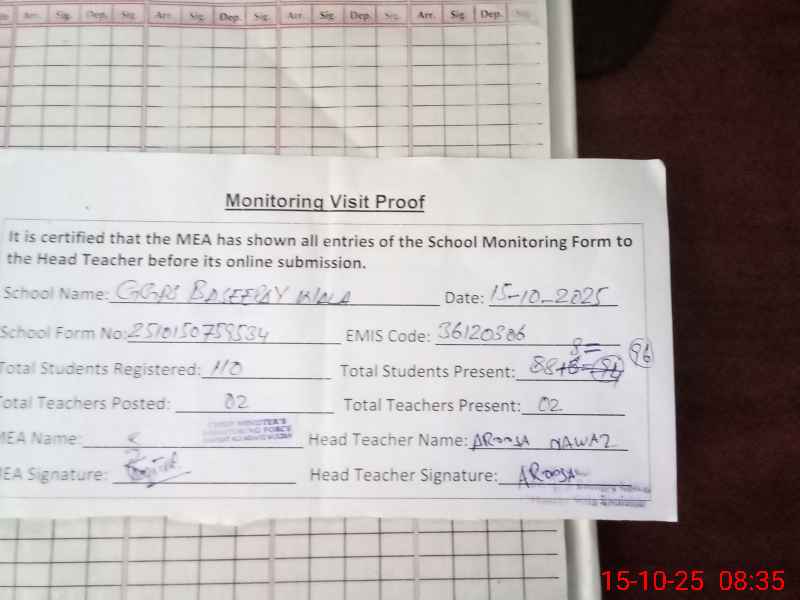 Arr. Sig. Dep. Sig. Arr. Sig. Dep. Sig. Arr. Sig. Dep. Sig. Arr. Sig. Dep. Sig.
Monitoring Visit Proof
It is certified that the MEA has shown all entries of the School Monitoring Form to
the Head Teacher before its online submission.
School Name: GGPS BASEERAY WALA Date: 15-10-2025
School Form No: 2510150759534 EMIS Code: 36120306
Total Students Registered: 110 Total Students Present: 88+8= 96
Total Teachers Posted: 02 Total Teachers Present: 02
MEA Name: CHIEF MINISTER'S MONITORING FORCE Head Teacher Name: AROOSA NAWAZ
MEA Signature: Head Teacher Signature: AROOSA
15-10-25 08:35